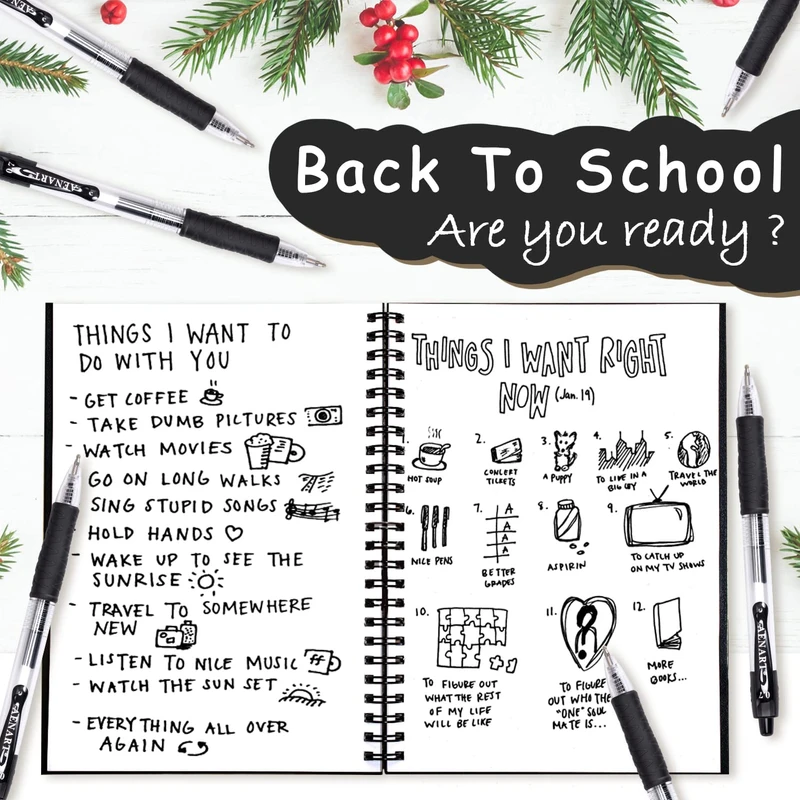 Back To School
Are you ready ?
AENART
AENART
AENART
AENART
0.7
THINGS I WANT TO
DO WITH YOU
- GET COFFEE
- TAKE DUMB PICTURES
- WATCH MOVIES
GO ON LONG WALKS
SING STUPID SONGS
HOLD HANDS ♡
- WAKE UP TO SEE THE
SUNRISE
- TRAVEL TO SOMEWHERE
NEW
- LISTEN TO NICE MUSIC
- WATCH THE SUN SET
- EVERYTHING ALL OVER
AGAIN
THINGS I WANT RIGHT
NOW (Jan. 19)
1.
HOT SOUP
2.
CONCERT
TICKETS
3.
A PUPPY
4.
TO LIVE IN A
BIG CITY
5.
TRAVEL THE
WORLD
6.
NICE PENS
7.
A
A
A
A
BETTER
GRADES
8.
ASPIRIN
9.
TO CATCH UP
ON MY TV SHOWS
10.
TO FIGURE OUT
WHAT THE REST
OF MY LIFE
WILL BE LIKE
11.
TO FIGURE
OUT WHO THE
"ONE" SOUL
MATE IS...
12.
MORE
BOOKS...